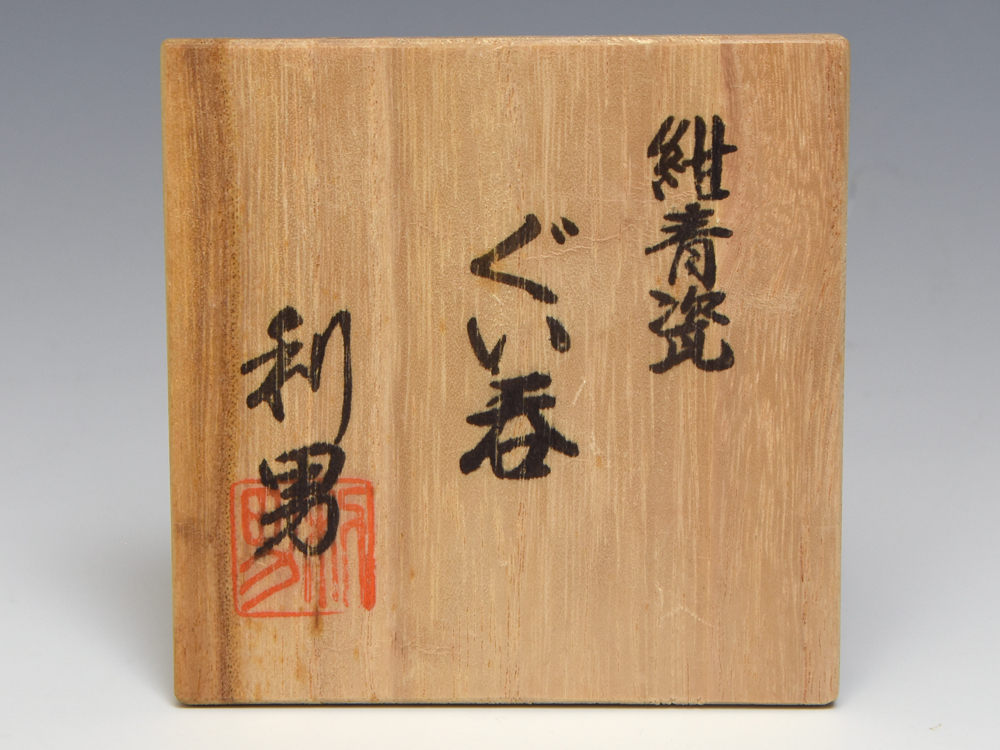 紺青瓷
ぐい呑
利男
利男